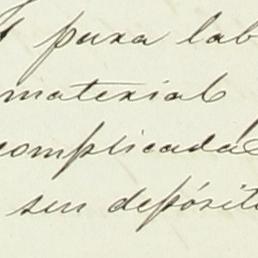 y para lab
material
complicadas
su depósito